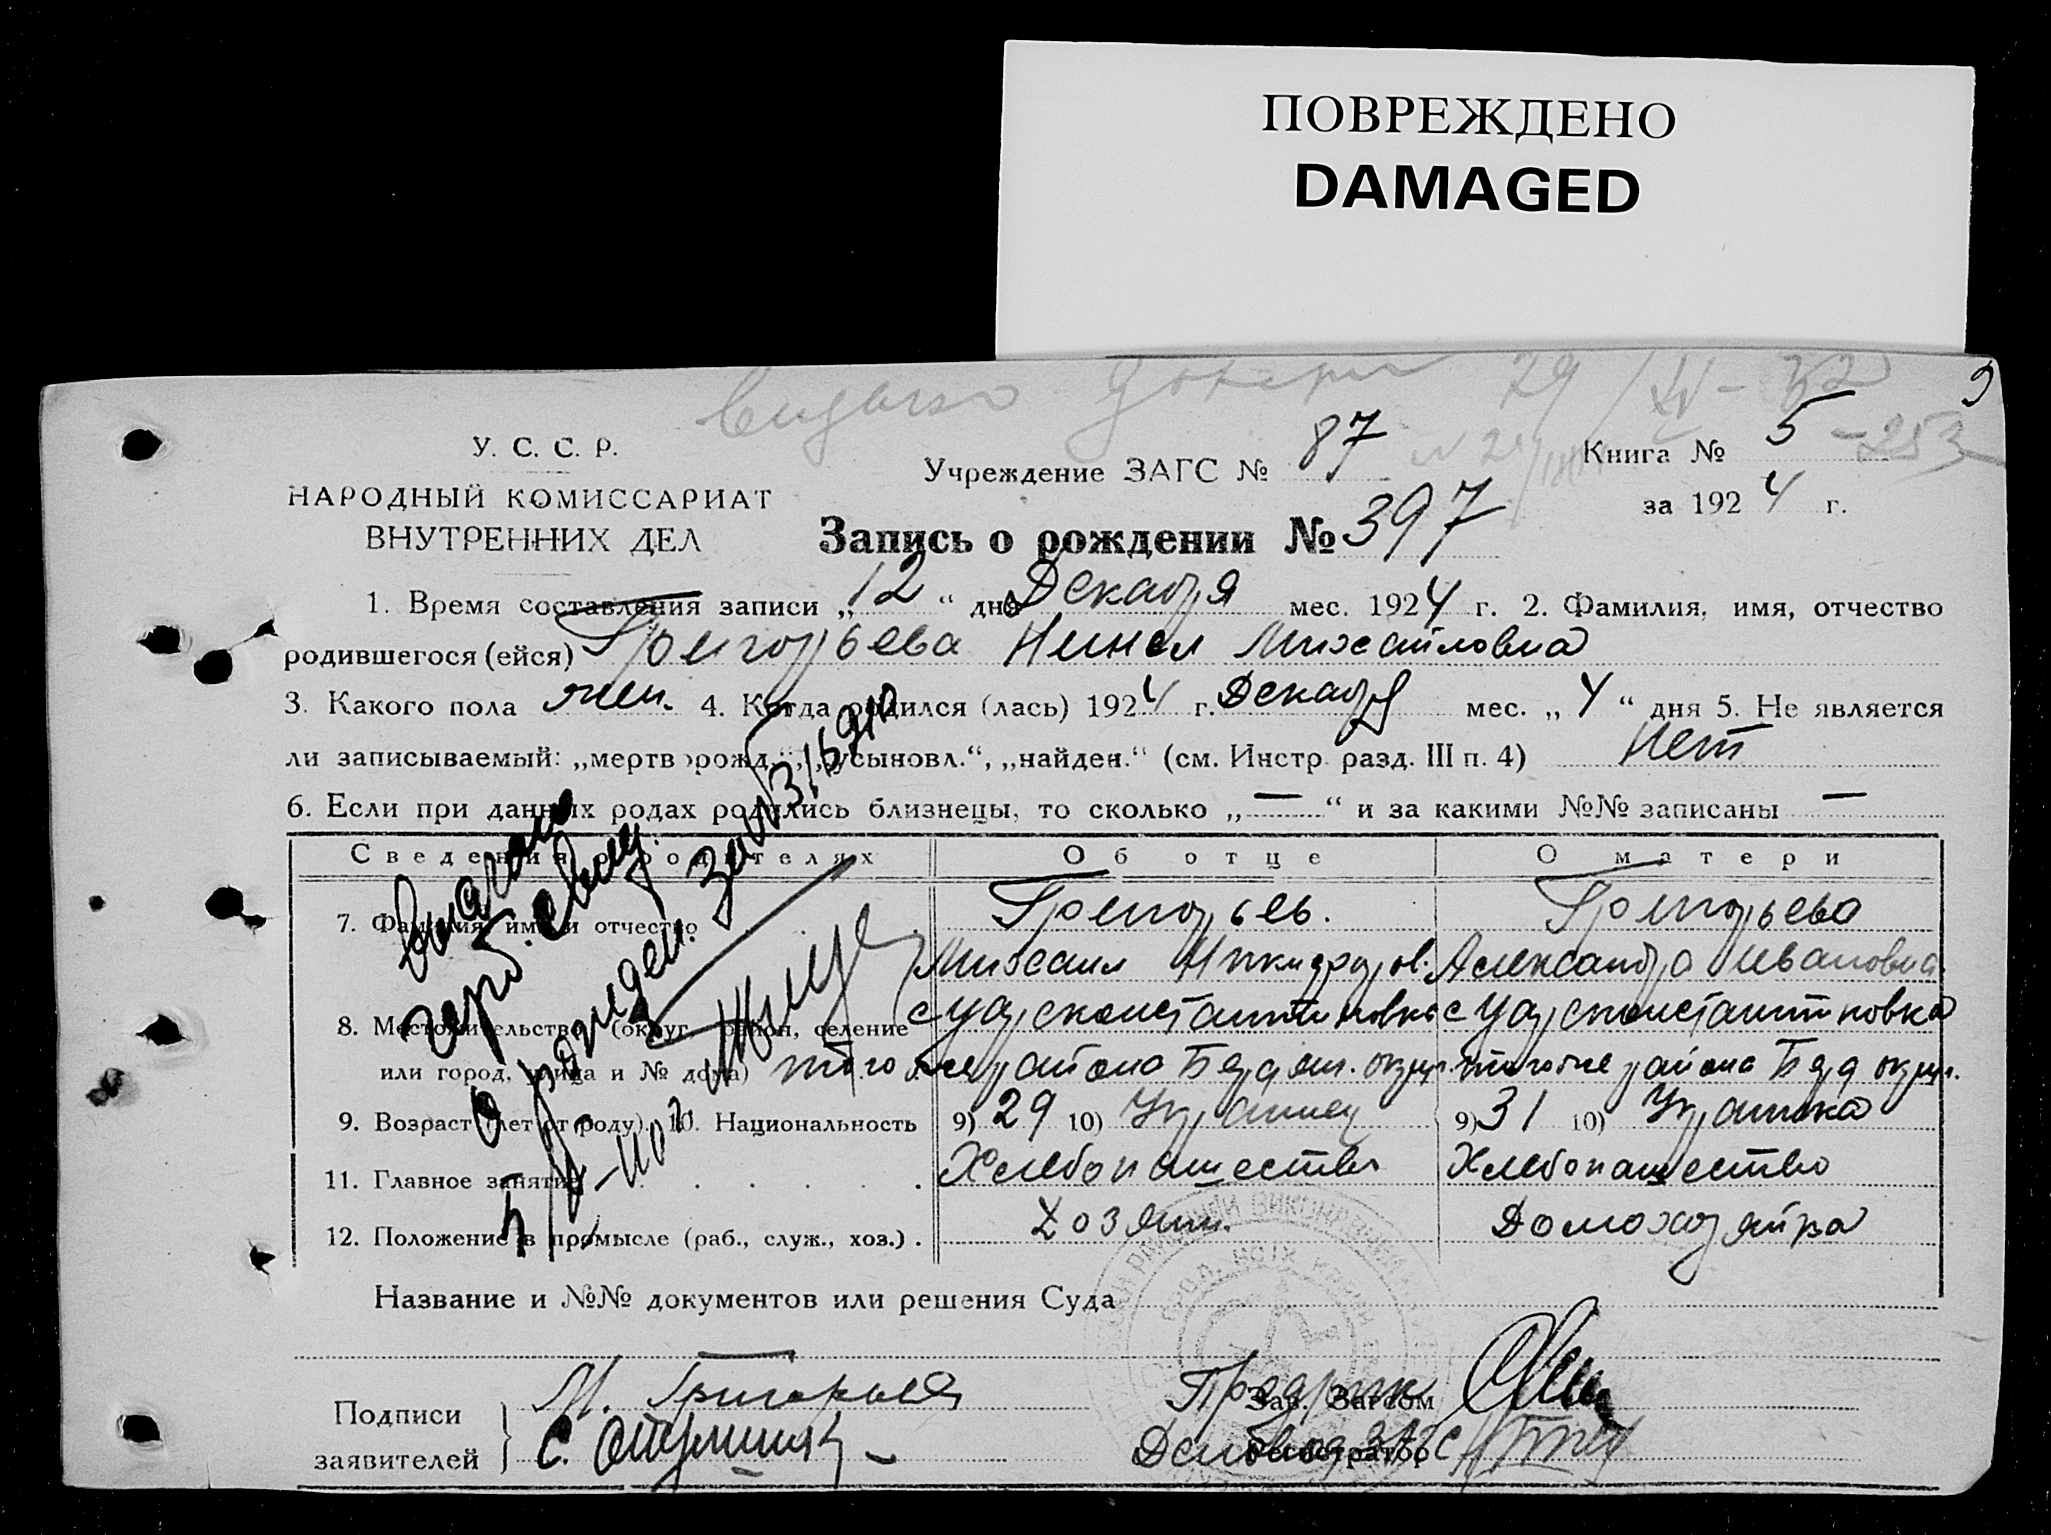 ПОВРЕЖДЕНО
DAMAGED
Видано 29/IV-32
У. С. С. Р.
НАРОДНЫЙ КОМИССАРИАТ
ВНУТРЕННИХ ДЕЛ
Учреждение ЗАГС № 87
Книга № 5 - 253
за 1924 г.
Запись о рождении № 397
1. Время составления записи „12“ дня Декабря мес. 1924 г. 2. Фамилия, имя, отчество
родившегося (ейся) Григорьева Нинел Михайловна
3. Какого пола жен. 4. Когда родился (лась) 1924 г. Декабря мес. „4“ дня 5. Не является
ли записываемый: „мертворожд.“, „усыновл.“, „найден.“ (см. Инстр. разд. III п. 4) Нет
6. Если при данных родах родились близнецы, то сколько „—“ и за какими №№ записаны —
Сведения о родителях Об отце О матери
7. Фамилия, имя и отчество Григорьев. Григорьева
Михаил Никифоров. Александра Ивановна
8. Местожительство (округ, район, селение с Царсконстантиновка с Царсконстантиновка
или город, улица и № дома) того же района Бердян. округ. того же района Берд округ.
9. Возраст (лет от роду). 10. Национальность 9) 29 10) Украинец 9) 31 10) Украинка
11. Главное занятие Хлебопашество Хлебопашество
12. Положение в промысле (раб., служ., хоз.) . Хозяин. Домохозяйка
Название и №№ документов или решения Суда
Подписи
заявителей
М. Григорьев
С.
Зав. Загсом
Регистратор